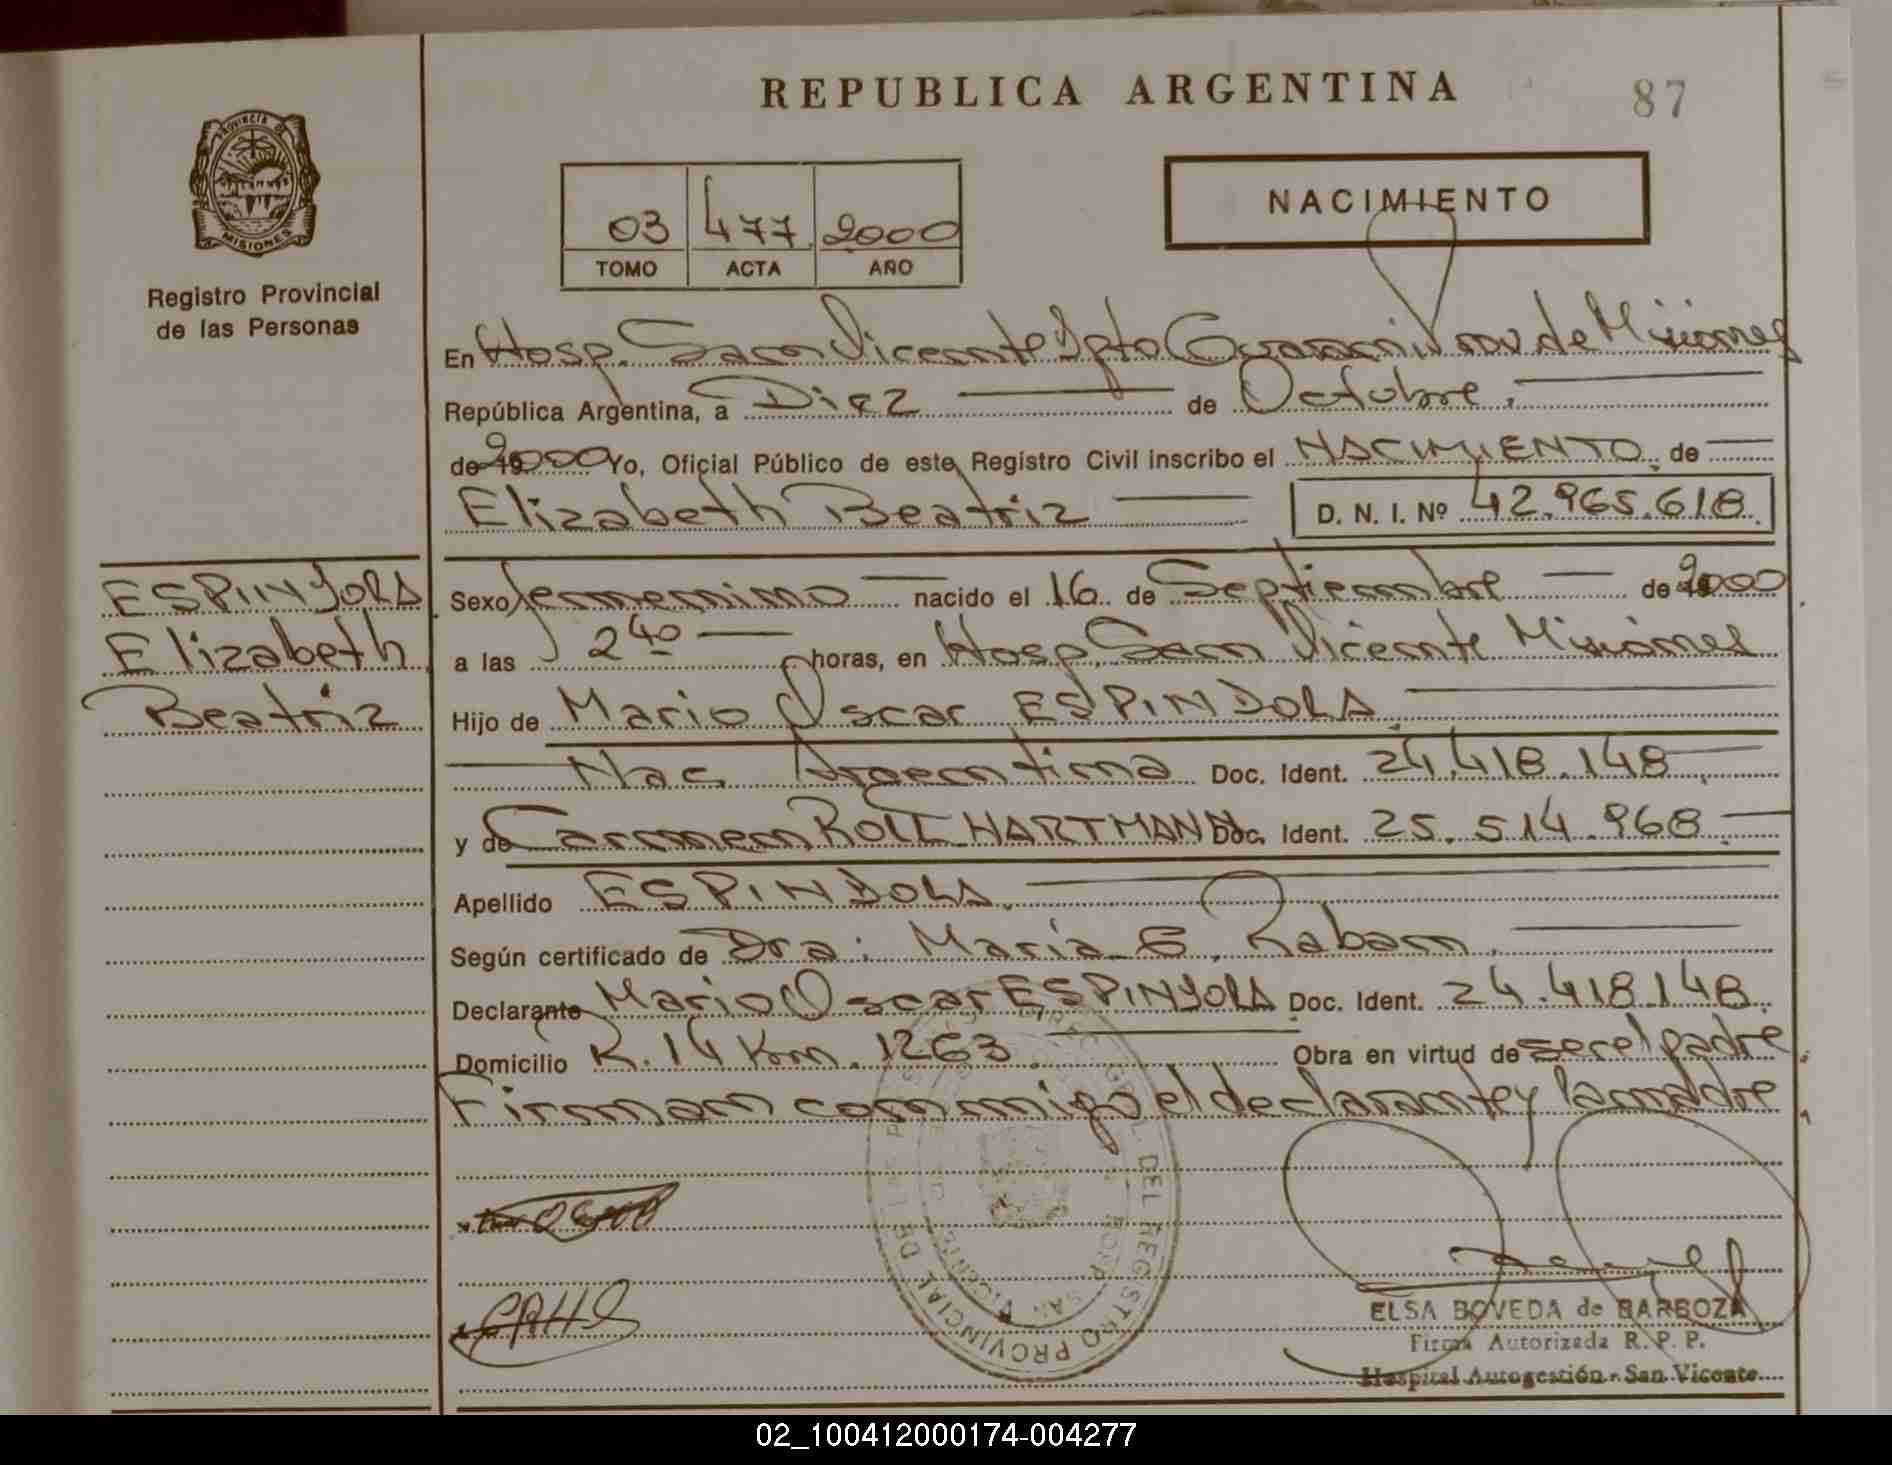 REPUBLICA ARGENTINA
87
PROVINCIA DE
MISIONES
Registro Provincial
de las Personas
03 477 2000
TOMO ACTA AÑO
NACIMIENTO
En Hosp. San Vicente Dpto Guarani Prov de Misiones
República Argentina, a Diez de Octubre.
de 2000 Yo, Oficial Público de este Registro Civil inscribo el NACIMIENTO de
Elizabeth Beatriz D. N. I. Nº 42.965.618
ESPINDOLA
Elizabeth
Beatriz
Sexo femenino nacido el 16 de Septiembre de 2000
a las 2 40 horas, en Hosp. San Vicente Misiones
Hijo de Mario Oscar ESPINDOLA
Nac. Argentina Doc. Ident. 24.418.148
y de Carmen ROLL HARTMANN Doc. Ident. 25.514.968
Apellido ESPINDOLA.
Según certificado de Dra: Maria E. Raban.
Declarante Mario Oscar ESPINDOLA Doc. Ident. 24.418.148
Domicilio R. 14 Km. 1263 Obra en virtud de ser el padre
Firman conmigo el declarante y la madre
DEL REGISTRO PROVINCIAL DE LAS
HOSP. SAN VICENTE
ELSA BOVEDA de BARBOZA
Firma Autorizada R. P. P.
Hospital Autogestión - San Vicente
02_100412000174-004277